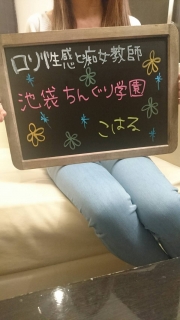 ロリ性感と痴女教師
池袋ちんぐり学園
こはる